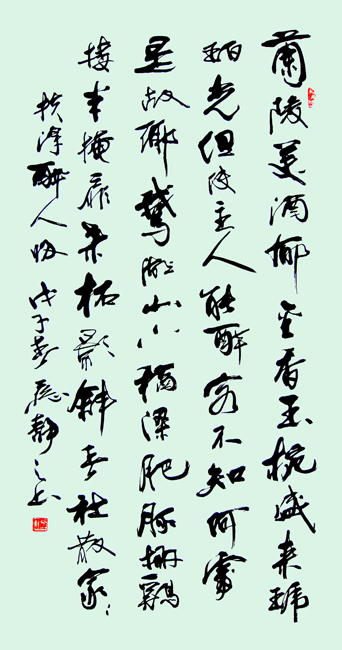 蘭陵美酒郁金香玉椀盛来琥
珀光但使主人能醉客不知何處
是故鄉鵞湖山下稻梁肥豚栅鷄
棲半掩扉桑柘影斜春社散家〻
扶得醉人归戊子